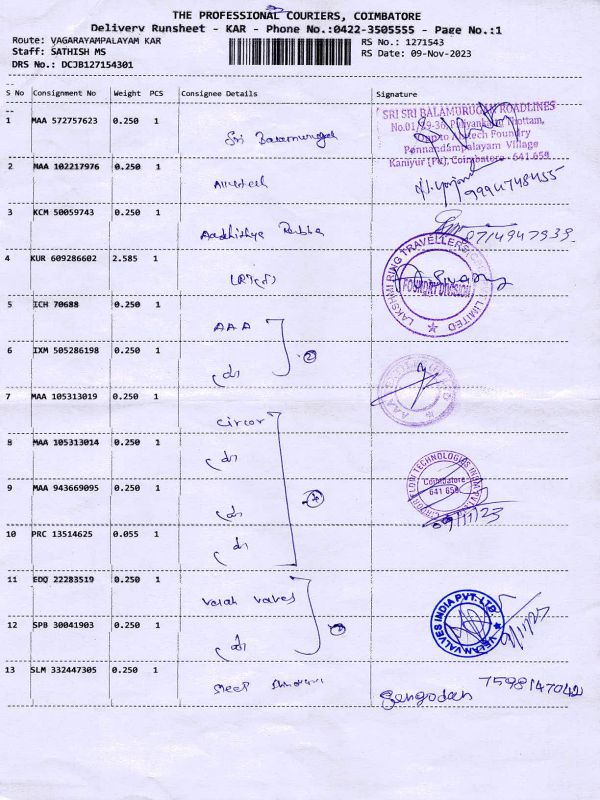 THE PROFESSIONAL COURIERS, COIMBATORE
Delivery Runsheet - KAR - Phone No.:0422-3505555 - Page No.:1
Route: VAGARAYAMPALAYAM KAR
RS No.: 1271543
Staff: SATHISH MS
RS Date: 09-Nov-2023
DRS No.: DCJB127154301
S No Consignment No Weight PCS Consignee Details Signature
1 MAA 572757623 0.250 1 Sri Balamurugan
SRI SRI BALAMURUGAN ROADLINES
Thottam,
Foundry
Ponnandampalayam Village
Kaniyur (Po), Coimbatore - 641 659
2 MAA 102217976 0.250 1
9994748455
3 KCM 50059743 0.250 1 Aadhithya
8714947939.
4 KUR 609286602 2.585 1 LRT
LAKSHMI RING TRAVELLERS LIMITED
FOUNDRY DIVISION
5 ICH 70688 0.250 1 AAA
2
6 IXM 505286198 0.250 1 do
AAA
7 MAA 105313019 0.250 1 Circor
8 MAA 105313014 0.250 1 do
4
9 MAA 943669095 0.250 1 do
CIRCOR FLOW TECHNOLOGIES INDIA PVT
Coimbatore
641 659
09/11/23
10 PRC 13514625 0.055 1 do
11 EDQ 22283519 0.250 1 valves
12 SPB 30041903 0.250 1 do
VALVES INDIA PVT. LTD.
13 SLM 332447305 0.250 1
7598147042
Sengodan